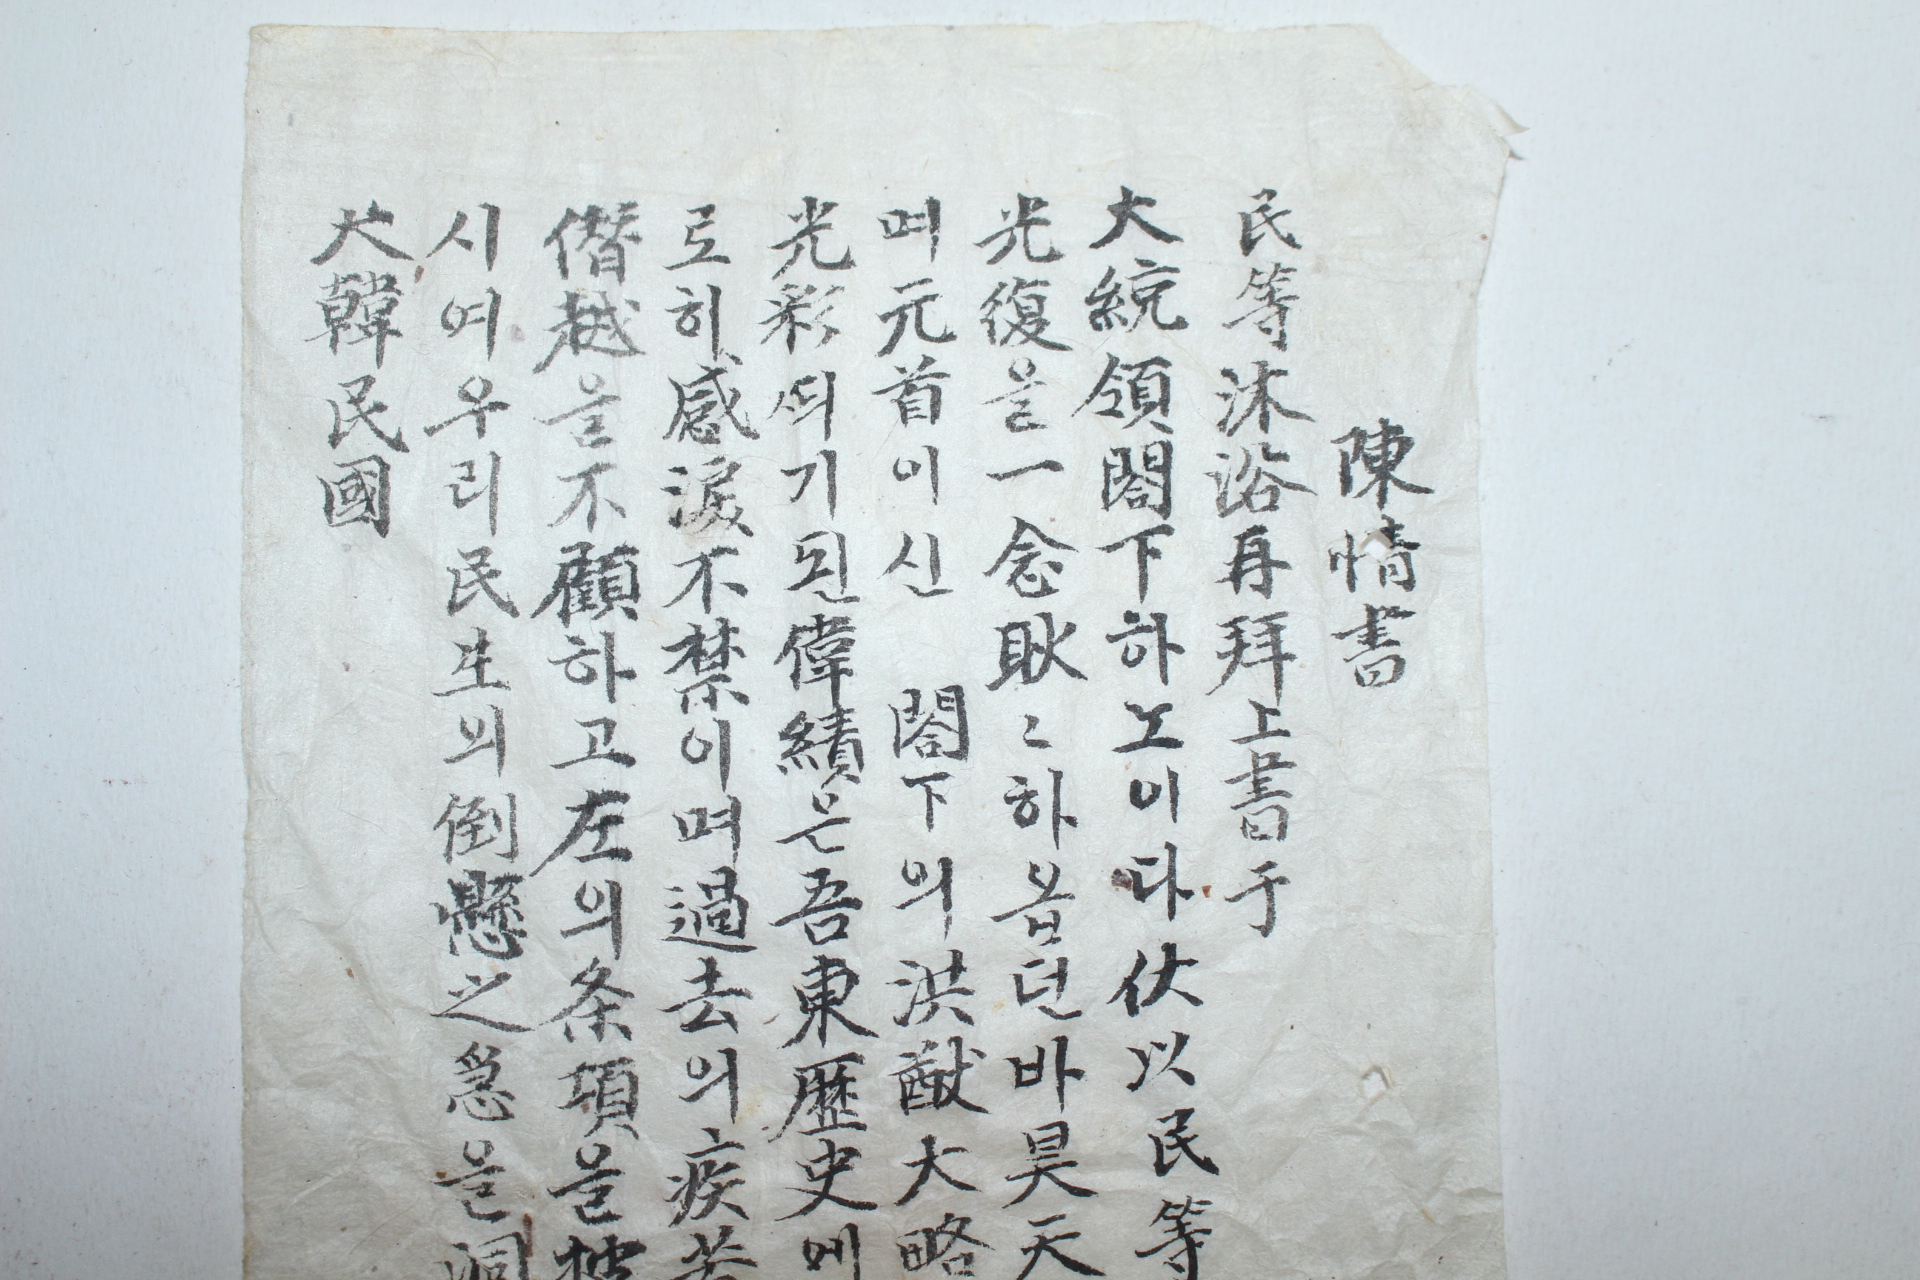 陳情書
民等沐浴再拜上書于
大統領閤下하노이다伏以民等
光復을一念耿々하옵던바昊天
며元首이신 閤下의洪猷大略
光彩띄기된偉績은吾東歷史에
로히感淚不禁이며過去의疾苦
僭越을不顧하고左의条項을披
시여우리民生의倒懸之急을洞
大韓民國